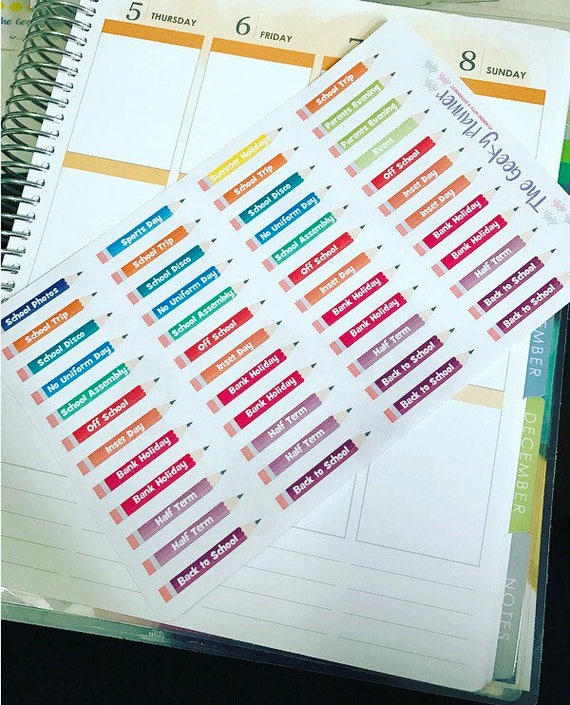 5 THURSDAY
6 FRIDAY
7
8 SUNDAY
School Photos
School Trip
School Disco
No Uniform Day
School Assembly
Off School
Inset Day
Bank Holiday
Bank Holiday
Half Term
Half Term
Back to School
Sports Day
School Trip
School Disco
No Uniform Day
School Assembly
Off School
Inset Day
Bank Holiday
Bank Holiday
Half Term
Half Term
Back to School
Summer Holiday
School Trip
School Disco
No Uniform Day
School Assembly
Off School
Inset Day
Bank Holiday
Bank Holiday
Half Term
Back to School
Back to School
School Trip
Parents Evening
Parents Evening
Event
Off School
Inset Day
Inset Day
Bank Holiday
Bank Holiday
Half Term
Back to School
Back to School
The Geeky Planner
EMBER
DECEMBER
NOTES